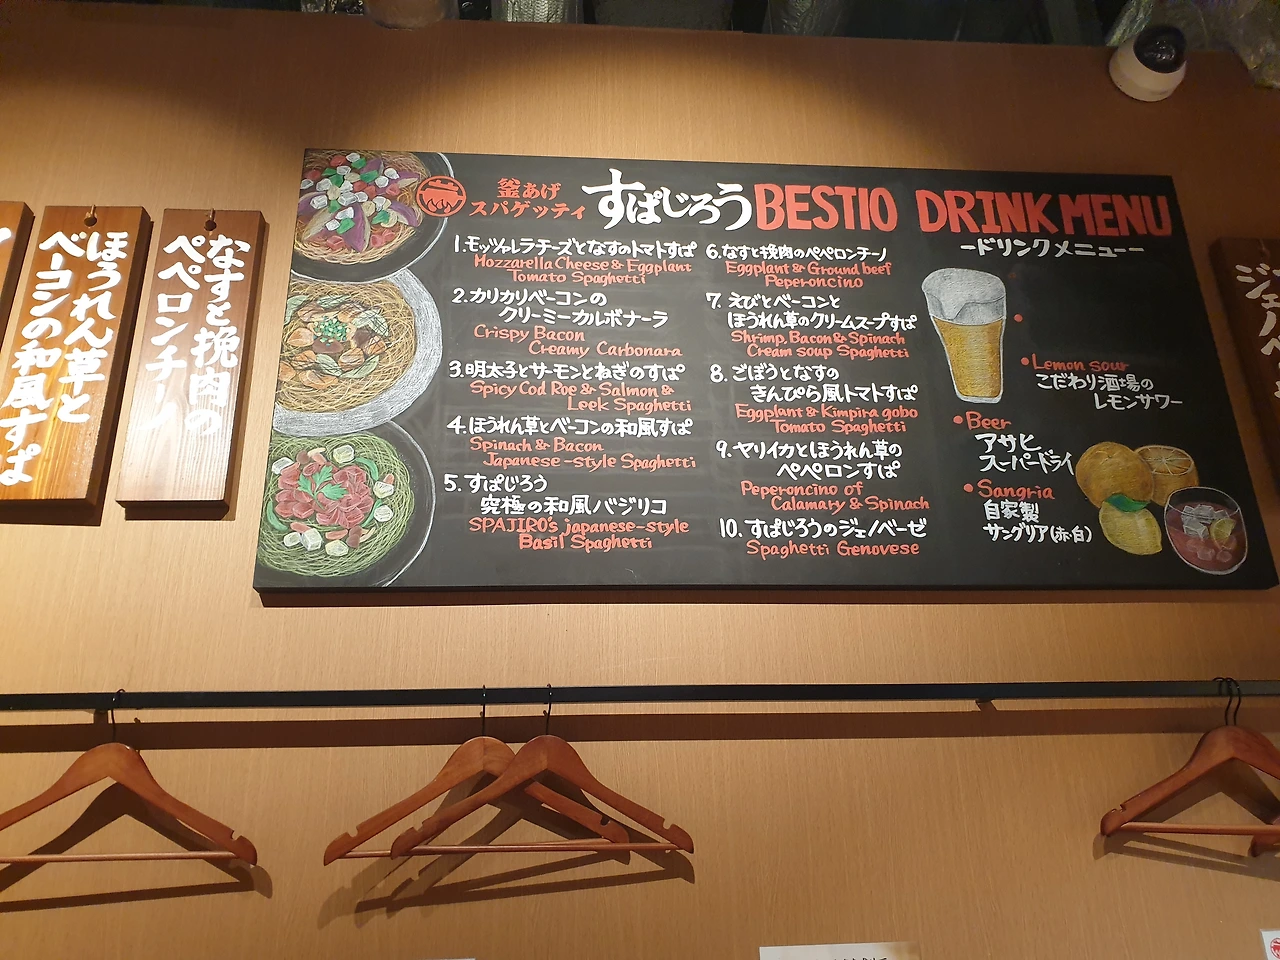 ほうれん草と
ベーコンの和風すぱ
なすと挽肉の
ペペロンチーノ
釜あげ
スパゲッティ
すぱじろう BEST10
1.モッツァレラチーズとなすのトマトすぱ
Mozzarella Cheese & Eggplant
Tomato Spaghetti
2.カリカリベーコンの
クリーミーカルボナーラ
Crispy Bacon
Creamy Carbonara
3.明太子とサーモンとねぎのすぱ
Spicy Cod Roe & Salmon &
Leek Spaghetti
4.ほうれん草とベーコンの和風すぱ
Spinach & Bacon
Japanese-style Spaghetti
5.すぱじろう
究極の和風バジリコ
SPAJIRO's japanese-style
Basil Spaghetti
6.なすと挽肉のペペロンチーノ
Eggplant & Ground beef
Peperoncino
7.えびとベーコンと
ほうれん草のクリームスープすぱ
Shrimp, Bacon & Spinach
Cream soup Spaghetti
8.ごぼうとなすの
きんぴら風トマトすぱ
Eggplant & Kimpira gobo
Tomato Spaghetti
9.ヤリイカとほうれん草の
ペペロンすぱ
Peperoncino of
Calamary & Spinach
10.すぱじろうのジェノベーゼ
Spaghetti Genovese
DRINK MENU
-ドリンクメニュー-
•Lemon sour
こだわり酒場の
レモンサワー
•Beer
アサヒ
スーパードライ
•Sangria
自家製
サングリア(赤・白)